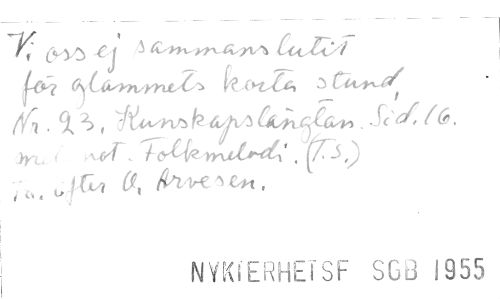 Vi oss ej sammanslutit
för glammets korta stund,
Nr. 23. Kunskapslängtan. Sid. 16.
med not. Folkmelodi. (T.S.)
efter O. Arvesen.
NYKTERHETSF SGB 1955